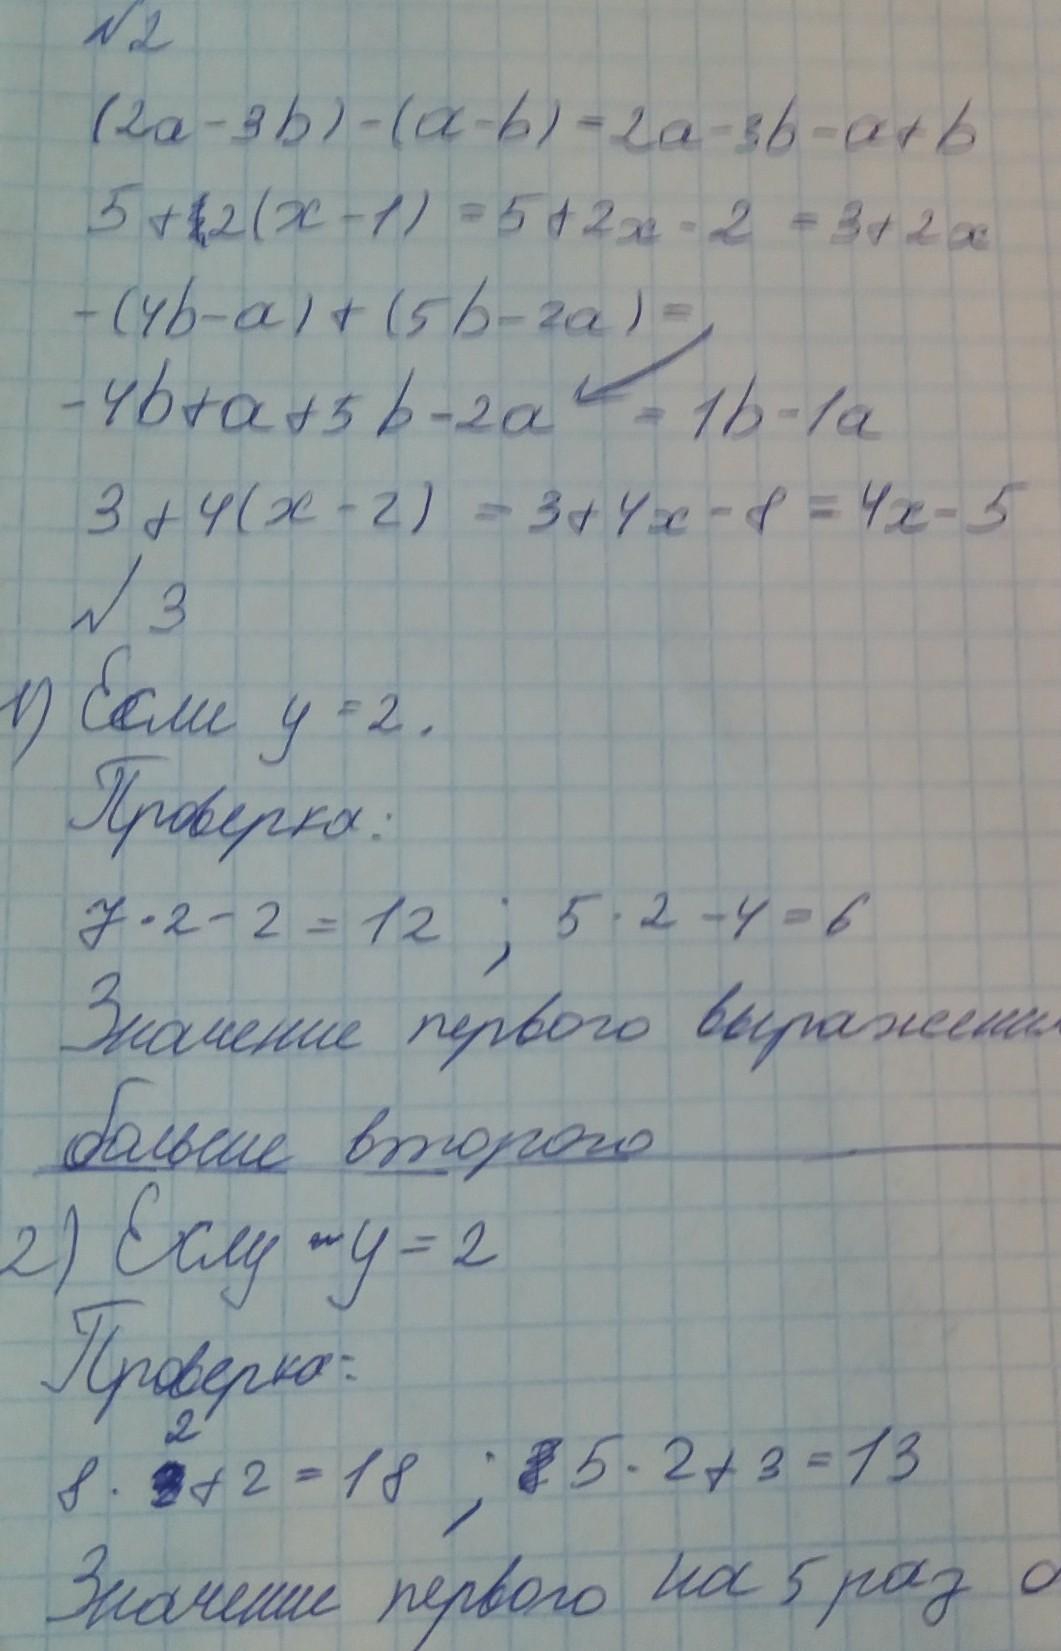 №2
(2a-3b)-(a-b)=2a-3b-a+b
5+2(x-1)=5+2x-2=3+2x
-(4b-a)+(5b-2a)=
-4b+a+5b-2a=1b-1a
3+4(x-2)=3+4x-8=4x-5
№3
1) Если y=2.
Проверка:
7·2-2=12 ; 5·2-4=6
Значение первого выражения
больше второго
2) Еслу -y=2
Проверка:
8·2+2=18 ; 5·2+3=13
Значение первого на 5 раз